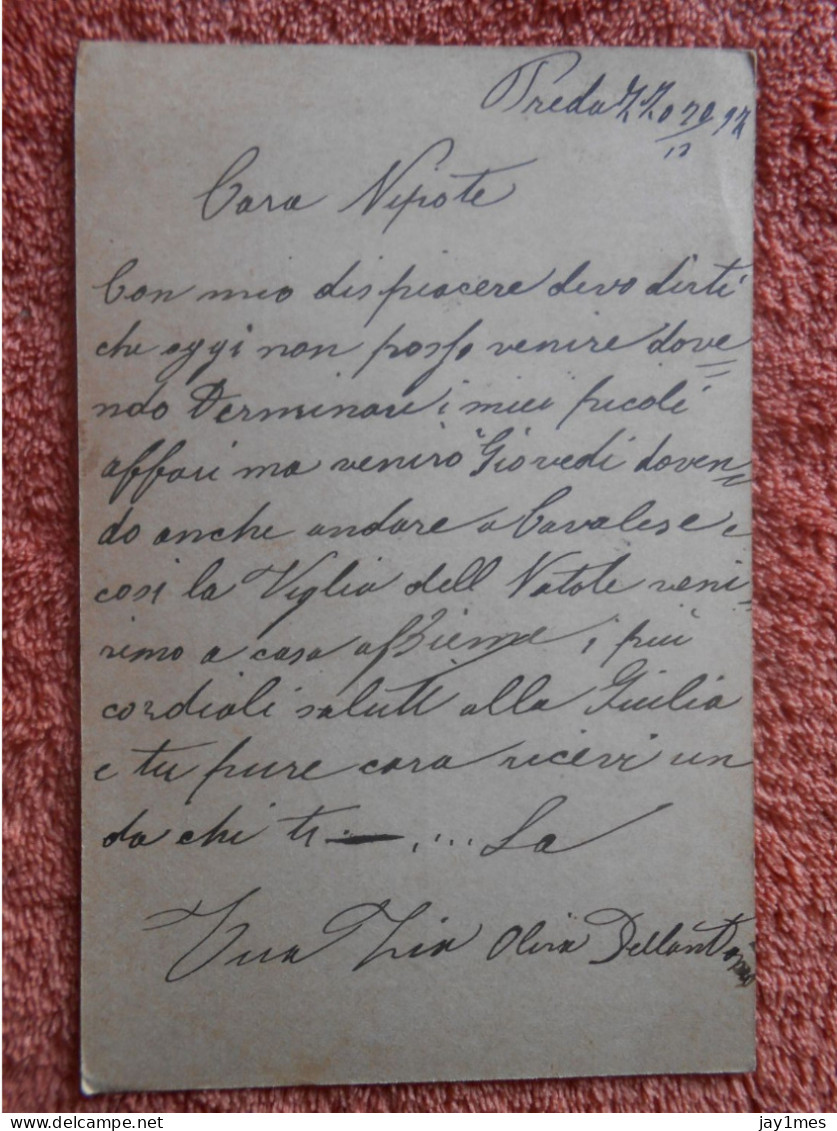 Predazzo 20/12 92
Cara Nipote
Con mio dispiacere devo dirti
che oggi non posso venire dove=
ndo Terminare i miei picoli
affari ma venirò Giovedi doven=
do anche andare a Cavalese e
cosi la Viglia dell Natale veni
remo a casa assieme, i piú
cordiali saluti alla Giulia
e tu pure cara ricevi un
da chi ti —, ... La
Tua Zia Oliva Dellantonio
Delcampe.net
jay1mes